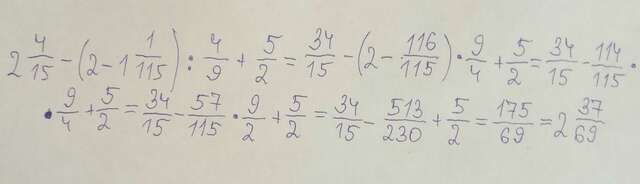 2 4/15 - (2 - 1 1/115) : 4/9 + 5/2 = 34/15 - (2 - 116/115) · 9/4 + 5/2 = 34/15 - 114/115 ·
· 9/4 + 5/2 = 34/15 - 57/115 · 9/2 + 5/2 = 34/15 - 513/230 + 5/2 = 175/69 = 2 37/69